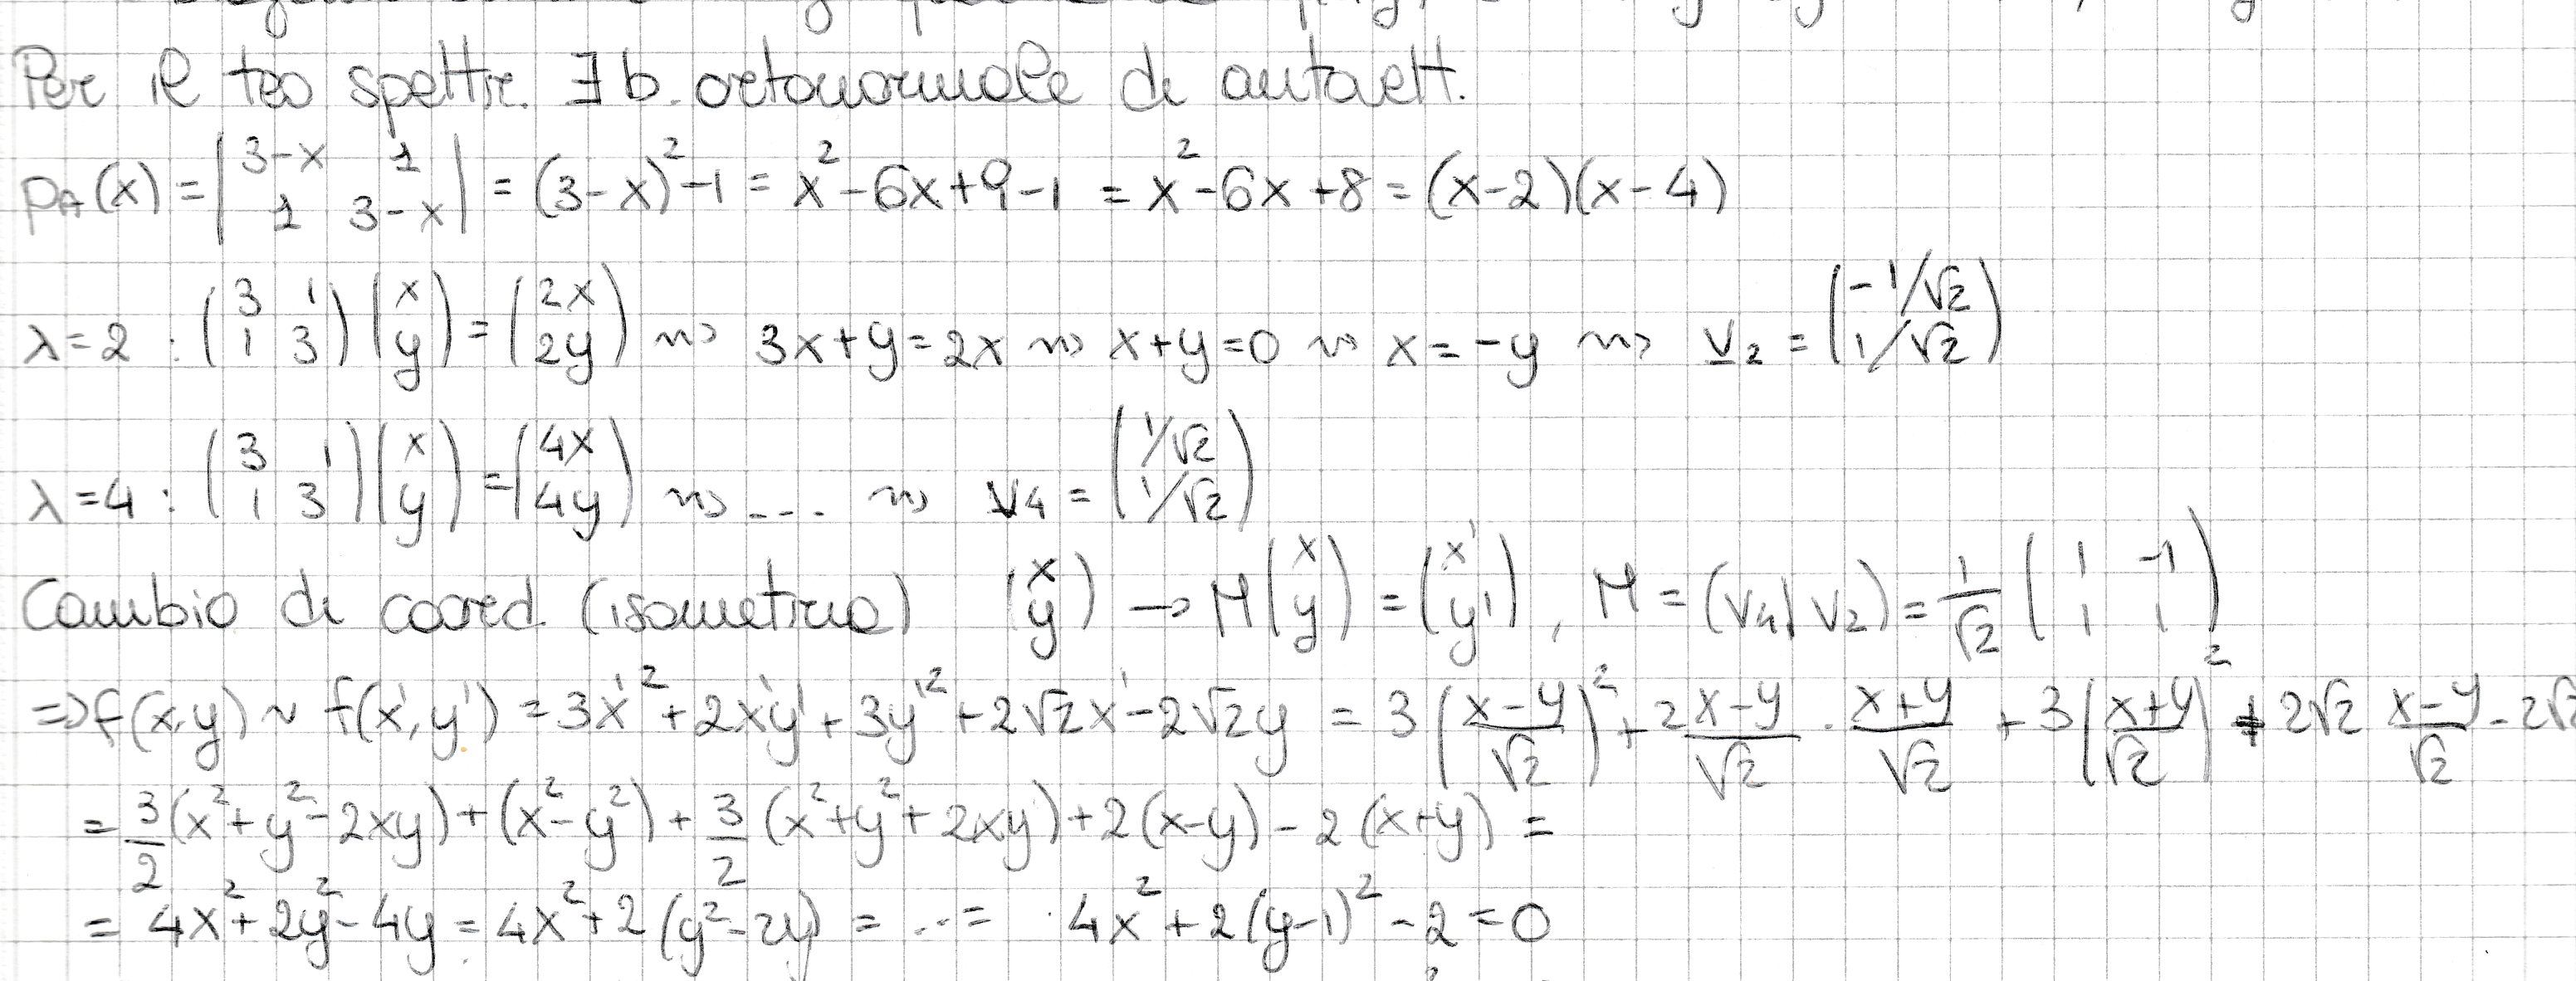 Per il teo spettr. ∃ b. ortonormale di autovett.
p_A(x) = |3-x 1; 1 3-x| = (3-x)² - 1 = x² - 6x + 9 - 1 = x² - 6x + 8 = (x-2)(x-4)
λ=2 : (3 1; 1 3)(x; y) = (2x; 2y) ⇝ 3x+y=2x ⇝ x+y=0 ⇝ x=-y ⇝ v₂ = (-1/√2; 1/√2)
λ=4 : (3 1; 1 3)(x; y) = (4x; 4y) ⇝ ... ⇝ v₄ = (1/√2; 1/√2)
Cambio di coord. (isometria) (x; y) → M(x; y) = (x'; y'), M = (v₄|v₂) = 1/√2 (1 -1; 1 1)
⇒ f(x,y) ~ f(x',y') = 3x'² + 2x'y' + 3y'² + 2√2x' - 2√2y = 3((x-y)/√2)² + 2 (x-y)/√2 · (x+y)/√2 + 3((x+y)/√2)² + 2√2 (x-y)/√2 - 2√2
= 3/2 (x²+y²-2xy) + (x²-y²) + 3/2 (x²+y²+2xy) + 2(x-y) - 2(x+y) =
= 4x² + 2y² - 4y = 4x² + 2(y²-2y) = ... = 4x² + 2(y-1)² - 2 = 0